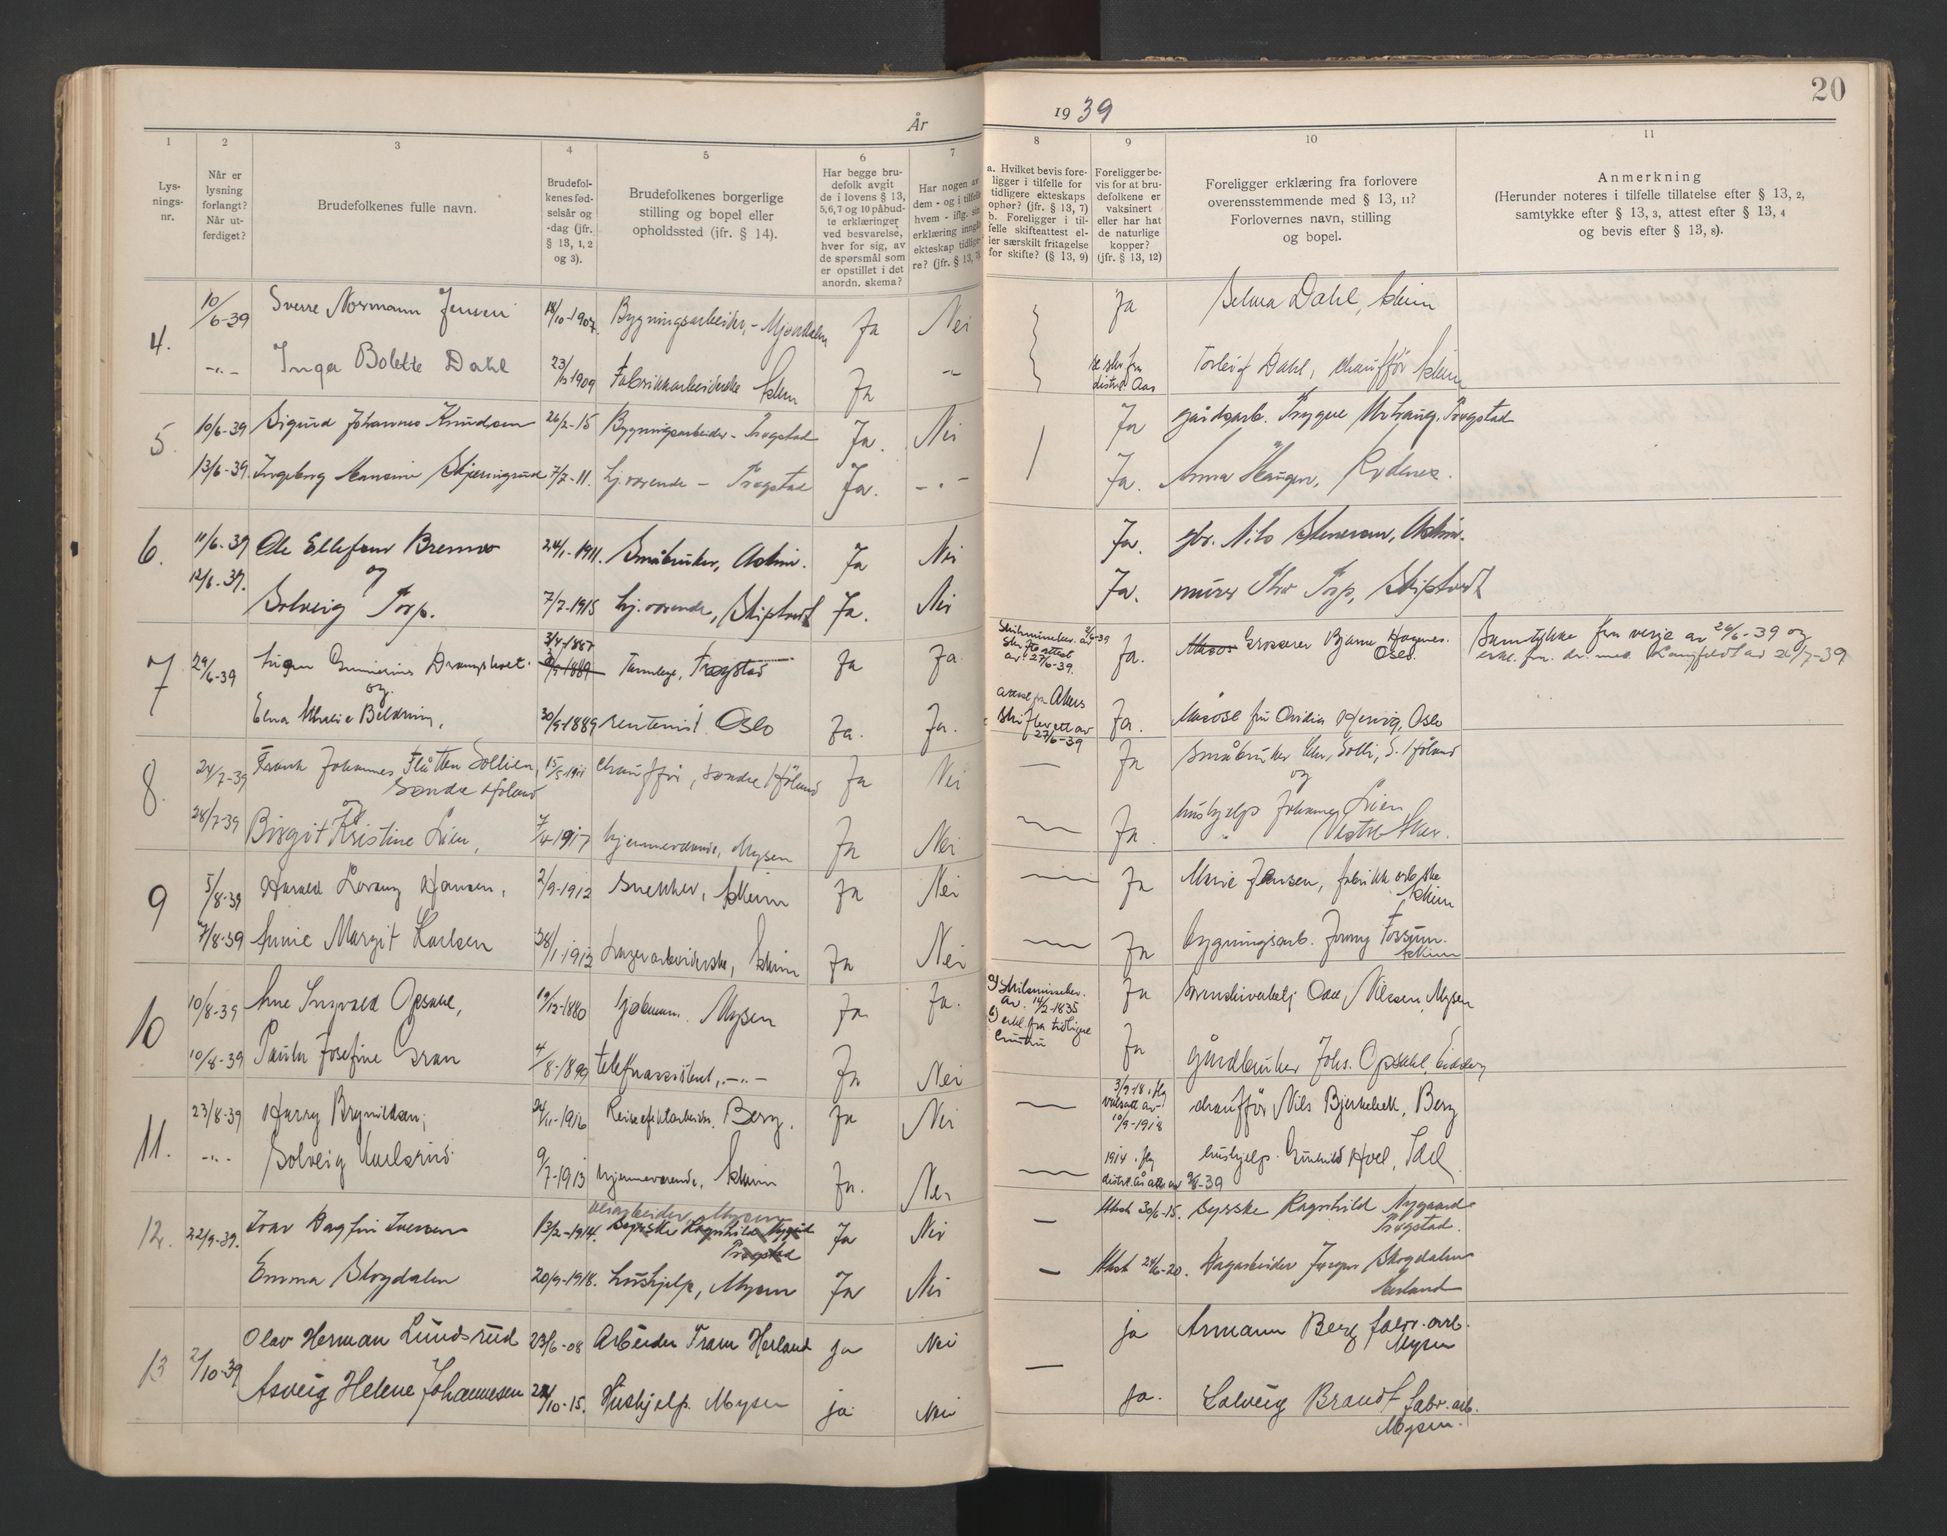 År 1939
20
1
2
3
4
5
6
7
8
9
10
11
Lys-
nings-
nr.
Når er
lysning
forlangt?
Når ut-
ferdiget?
Brudefolkenes fulle navn.
Brudefol-
kenes fød-
selsår og
-dag (jfr.
§ 13, 1, 2
og 3).
Brudefolkenes borgerlige
stilling og bopel eller
opholdssted (jfr. § 14).
Har begge bru-
defolk avgit
de i lovens § 13,
5,6,7 og 10 påbud-
te erklæringer
ved besvarelse,
hver for sig, av
de spørsmål som
er opstillet i det
anordn. skema?
Har nogen av
dem - og i tilfelle
hvem - iflg. sin
erklæring inngått
ekteskap tidlige-
re? (jfr. § 13, 7)
a. Hvilket bevis fore-
ligger i tilfelle for
tidligere ekteskaps
ophør? (jfr. § 13, 7)
b. Foreligger i til-
felle skifteattest el-
ler særskilt fritagelse
for skifte? (§ 13, 9)
Foreligger be-
vis for at bru-
defolkene er
vaksinert
eller har hat
de naturlige
kopper?
(jfr. § 13, 12)
Foreligger erklæring fra forlovere
overensstemmende med § 13, 11?
Forlovernes navn, stilling
og bopel.
Anmerkning
(Herunder noteres i tilfelle tillatelse efter § 13, 2,
samtykke efter § 13, 3, attest efter § 13, 4
og bevis efter § 13, 8).
4. 10/6-39 Sverre Normann Jensen 18/10-1907. Bygningsarbeider, - Mjøndalen Ja Nei Ja Selma Dahl, Askim
-"- Inga Bolette Dahl 23/ 1909 Fabrikkarbeiderske Askim Ja -"- Torleif Dahl, chauffør Askim
5. 10/6-39 Sigurd Johannes Knudsen 26/2-15 Bygningsarbeider - Trøgstad Ja. Nei Ja gårdsarb. Trygve Trøgstad
13/6-39. Ingeborg Skjæringrud 7/7-11. hj.værende - Trøgstad Ja. -"- Ja. Anna Haugen, Rødenes.
6. 11/6-39 Ole Ellefsen 24/1-1911. Småbruker, Askim. Ja Nei Ja. gbr. Nils Stenersen, Askim.
12/6-39. og
Solveig Torp. 7/7-1915 hj.værende, Skiptvedt Ja. Nei Ja. murer Thor Torp, Skiptvedt
7 29/6-39 3/4-1887 Tannlege, Trøgstad Ja Ja. Skilsmissebev. av 2/6-39 Skifteattest av 27/6-39. Ja. Grosserer Bjarne Oslo. Samtykke fra verje av 26/6-39 og
erkl. fra dr. med. av 26/7-39
og
Elna 30/9-1889 rentenist Oslo Ja. Ja. Akers Skifterett av 27/6-39 Ja. fru Oslo
8. 24/7-39 Frank Johannes Fløtten Sollien, 15/5-1911 chauffør, søndre Høland Ja Nei — Ja Småbruker Chr. Solli, S. Høland
Søndre Høland
og og
28/7-39 Birgit Kristine Lien, 7/4-1917 hjemmeværende, Mysen Ja Nei Ja. hushjelp Johanne Lien
Vestre Aker.
9 5/8-39 Harald Lorang Hansen, 2/9-1912 snekker, Askim Ja Nei Ja Marie Jensen, fabrikkarb.ske
Askim
7/8-39 Annie Margit Karlsen 28/1-1912 Lagerarbeiderske, Askim Ja Nei Ja bygningsarb. Jonny Fossum.
Askim
10 10/8-39 Arne Ingvald Opsahl, 10/12-1880 Mysen Ja Ja. a) Skilsmissebev. av. 14/2-1835 b) erkl. fra tidligere hustru Ja Nilssen, Mysen
10/8-39 Paula Josefine Gran 4/8-1899 telefonassistent, -"- Ja Nei Ja gårdbruker Johs. Opsahl, Eidsberg
11. 23/8-39 Harry Brynildsen, 24/11-1916 Reiseeffektarbeider, Berg. Ja Nei 3/9-18. iflg vaksatt av 10/9-1918 chauffør Nils Bjerkebek, Berg
-"- Solveig Karlsrud 9/7-1913 hjemmeværende, Askim Ja. Nei 1914. iflg 9/8-39 hushjelp. Gunhild Hoel,
12. 22/9-39. Ivar Dagfin Iversen 13/2-1914. Mysen Sydske Ragnhild Nygård Trøgstad Ja Nei — Attest 30/6-15. Syerske Ragnhild Nygaard
Trøgstad.
Emma Skogdalen 20/9-1918. Hushjelp, Mysen Ja Nei — Attest 24/6-20. Skogdalen
Herland
13 2/10-39 Olav Herman Lundsrud 23/6-08 Arbeider Tram Herland ja Nei — ja Armann Berg fabr. arb.
Mysen
Asveig Helene Johannesen /10-15. Hushjelp. Mysen ja Nei ja. Solveig Brandt fabr. arb.
Mysen.